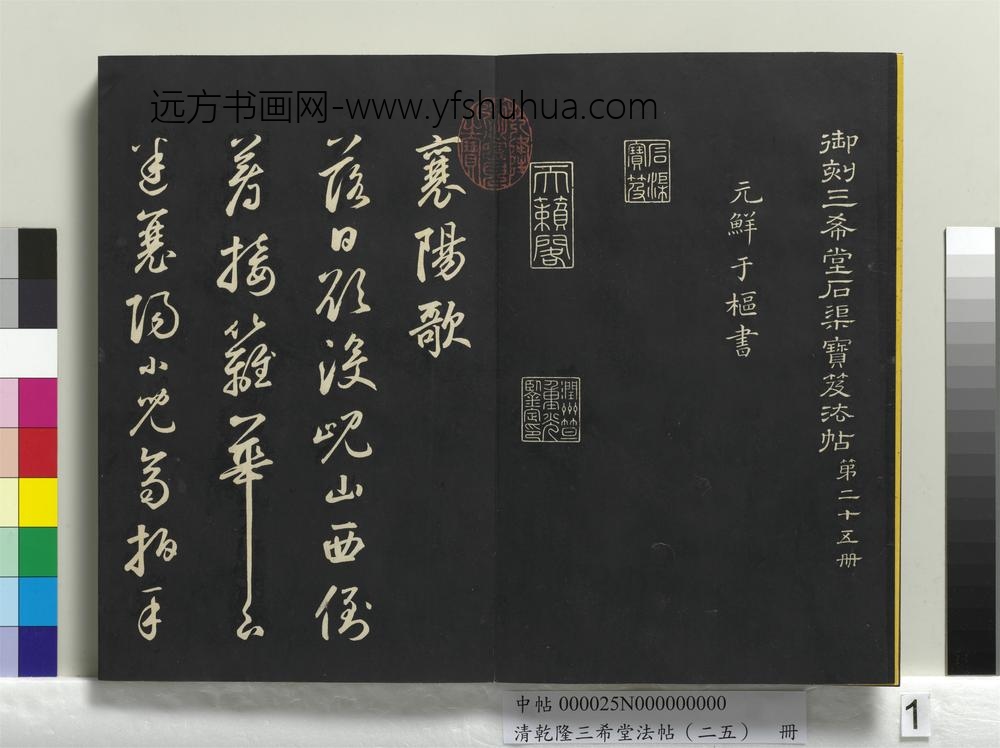 远方书画网-www.yfshuhua.com
御刻三希堂石渠寶笈法帖第二十五册
元鮮于樞書
石渠寶笈
天籟閣
襄陽歌
落日欲没峴山西倒
著接䍦華下
迷襄陽小兒齊拍手
中帖 000025N000000000
清乾隆三希堂法帖（二五） 册
1